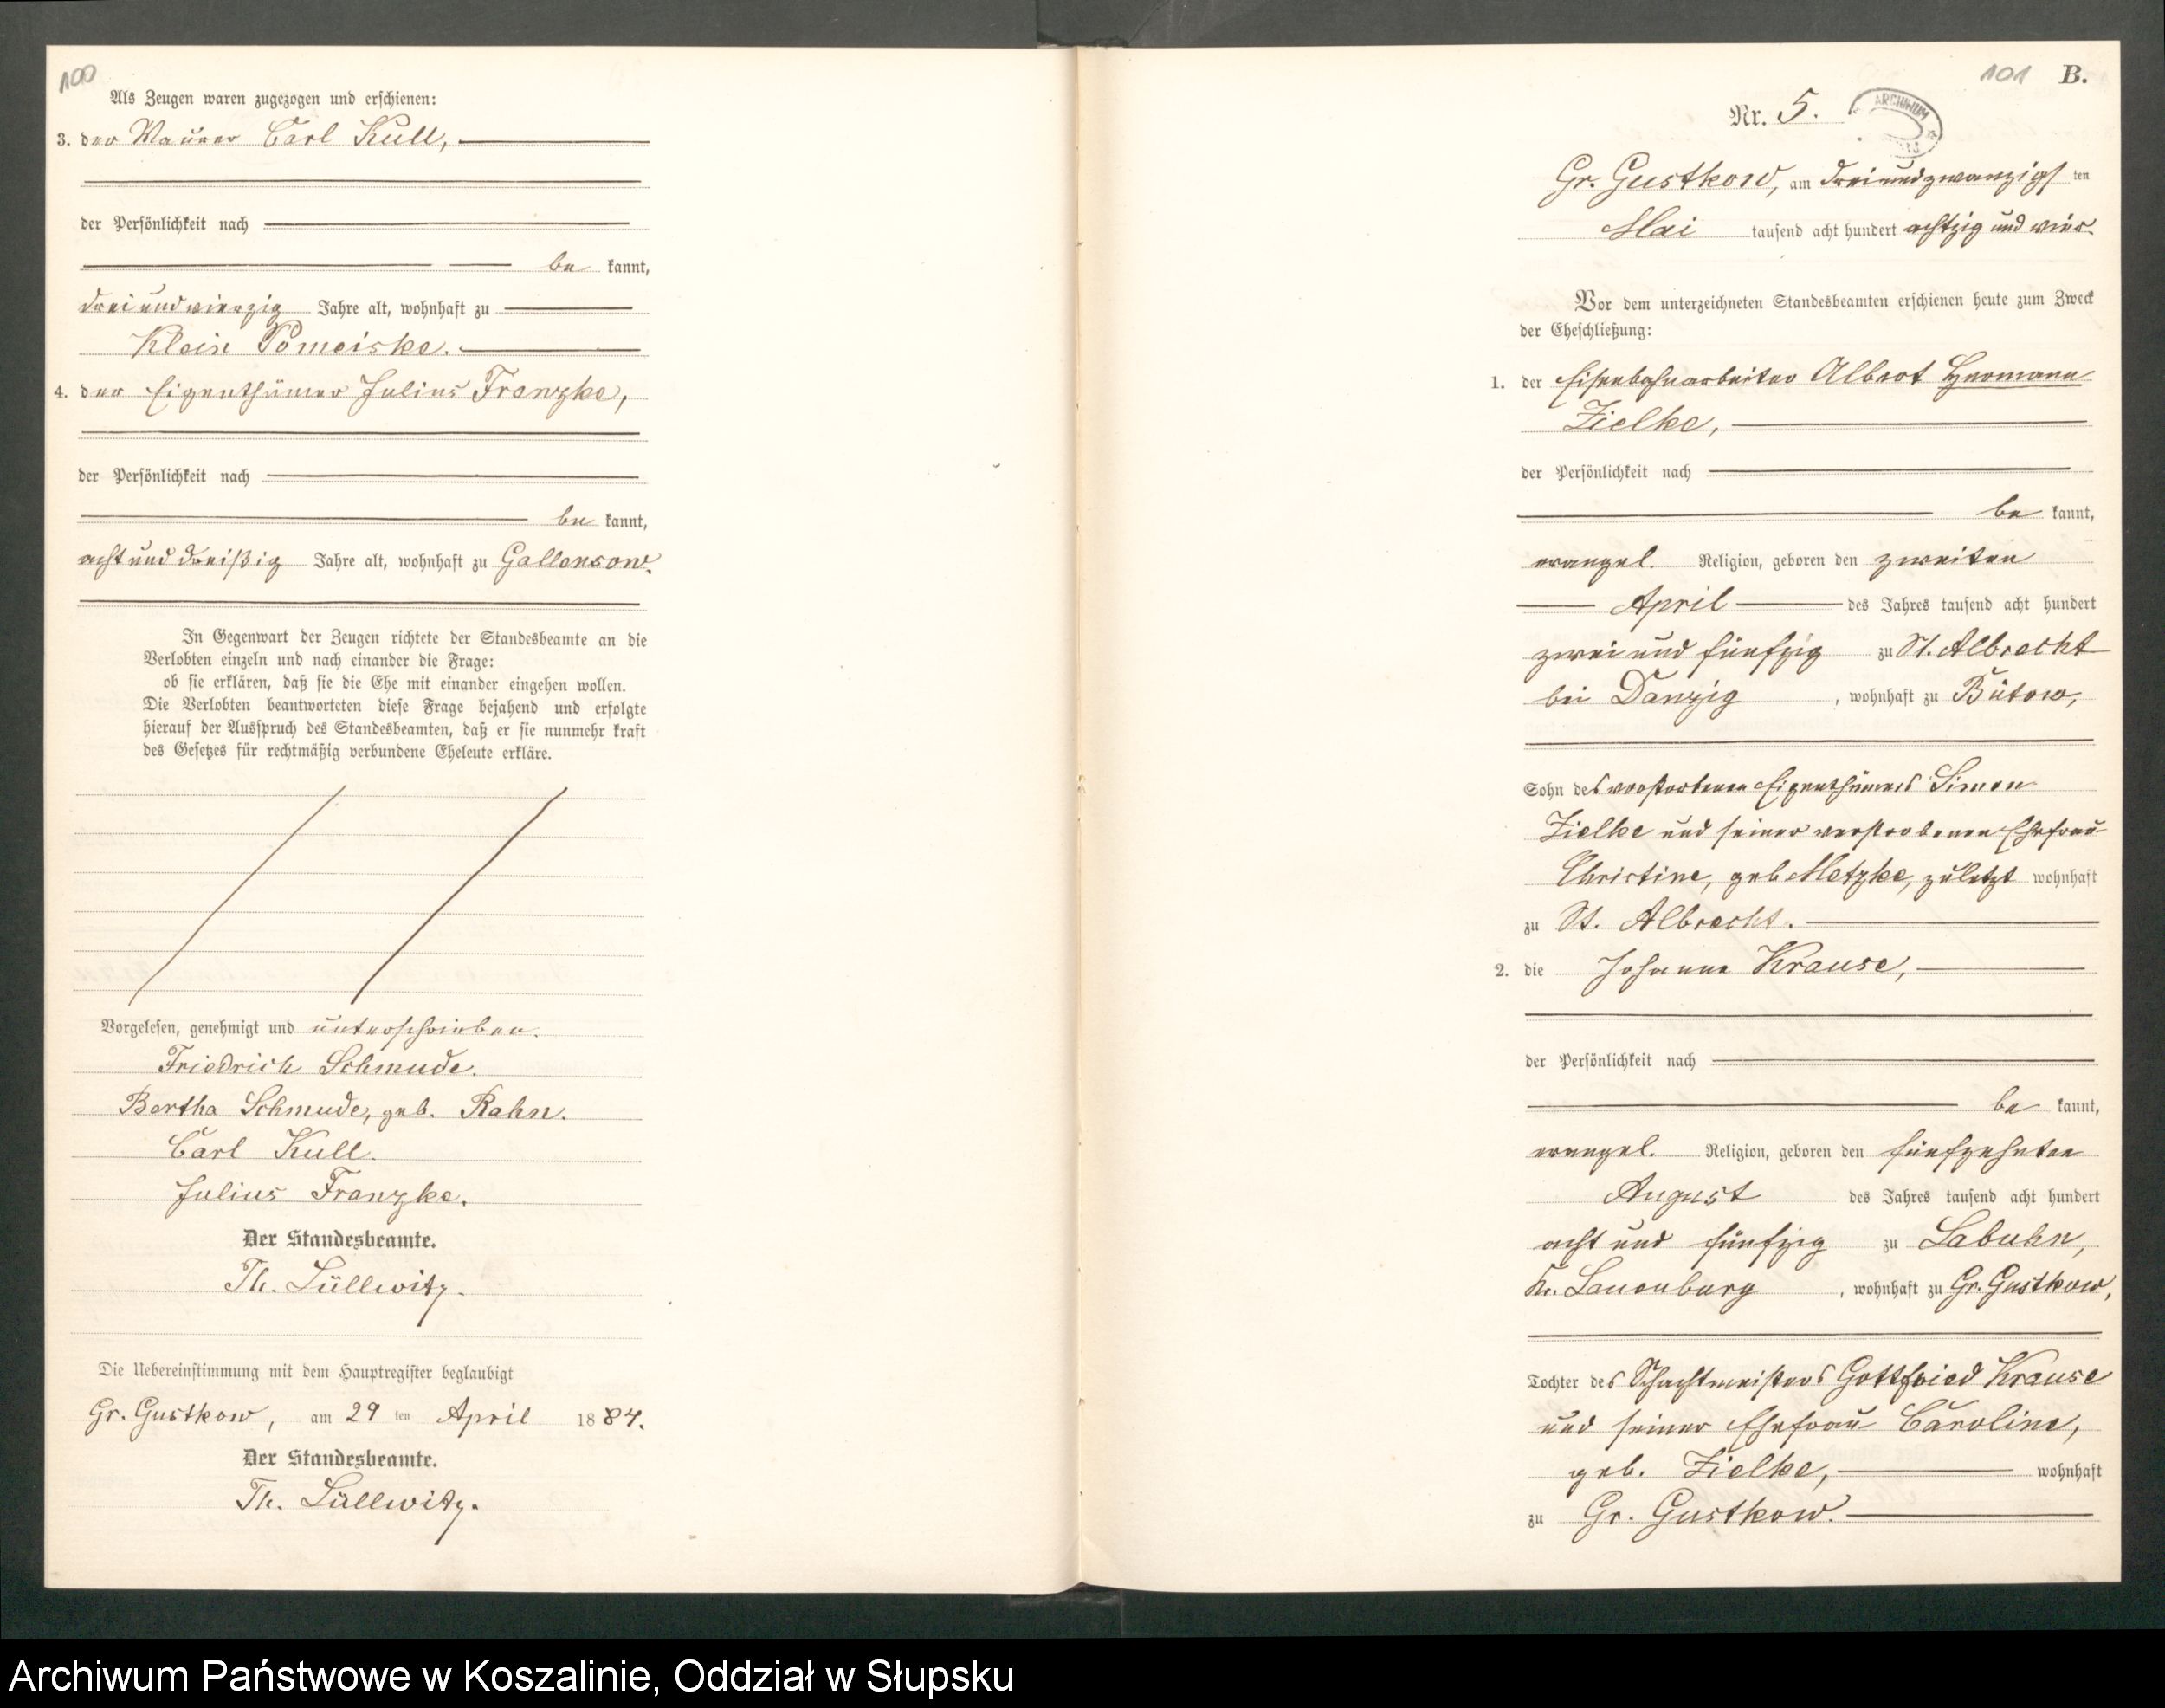 100
Als Zeugen waren zugezogen und erschienen:
3. der Maurer Carl Kull,
der Persönlichkeit nach
be kannt,
dreiundvierzig Jahre alt, wohnhaft zu
Klein Pomeiske.
4. der Eigenthümer Julius Franzke,
der Persönlichkeit nach
be kannt,
acht und dreißig Jahre alt, wohnhaft zu Gallensow.
In Gegenwart der Zeugen richtete der Standesbeamte an die
Verlobten einzeln und nach einander die Frage:
ob sie erklären, daß sie die Ehe mit einander eingehen wollen.
Die Verlobten beantworteten diese Frage bejahend und erfolgte
hierauf der Ausspruch des Standesbeamten, daß er sie nunmehr kraft
des Gesetzes für rechtmäßig verbundene Eheleute erkläre.
Vorgelesen, genehmigt und unterschrieben.
Friedrich Schmude.
Bertha Schmude, geb. Rahn.
Carl Kull.
Julius Franzke.
Der Standesbeamte.
Th. Lüllwitz.
Die Uebereinstimmung mit dem Hauptregister beglaubigt
Gr. Gustkow, am 29 ten April 1884.
Der Standesbeamte.
Th. Lüllwitz.
101 B.
Nr. 5.
ARCHIWUM
Gr. Gustkow, am dreiundzwanzigs ten
Mai tausend acht hundert achtzig und vier.
Vor dem unterzeichneten Standesbeamten erschienen heute zum Zweck
der Eheschließung:
1. der Eisenbahnarbeiter Albert Hermann
Zielke,
der Persönlichkeit nach
be kannt,
evangel. Religion, geboren den zweiten
April des Jahres tausend acht hundert
zwei und fünfzig zu St. Albrecht
bei Danzig, wohnhaft zu Bütow,
Sohn des verstorbenen Eigenthümers Simon
Zielke und seiner verstorbenen Ehefrau
Christine, geb. Metzke, zuletzt wohnhaft
zu St. Albrecht.
2. die Johanna Krause,
der Persönlichkeit nach
be kannt,
evangel. Religion, geboren den fünfzehnten
August des Jahres tausend acht hundert
acht und fünfzig zu Labuhn,
Kr. Lauenburg, wohnhaft zu Gr. Gustkow,
Tochter des Schachtmeisters Gottfried Krause
und seiner Ehefrau Caroline,
geb. Zielke, wohnhaft
zu Gr. Gustkow.
Archiwum Państwowe w Koszalinie, Oddział w Słupsku